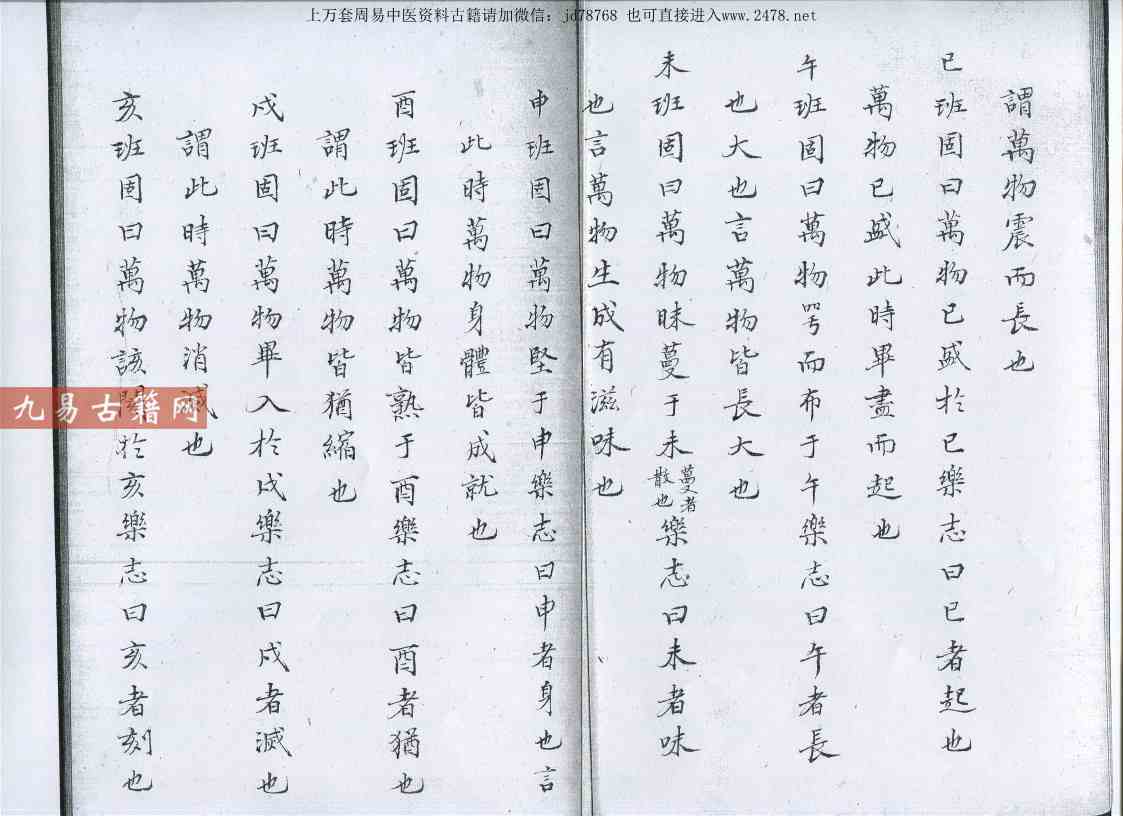 上万套周易中医资料古籍请加微信：jd78768 也可直接进入www.2478.net
謂萬物震而長也
巳班固曰萬物已盛於巳樂志曰巳者起也
萬物已盛此時畢盡而起也
午班固曰萬物咢而布于午樂志曰午者長
也大也言萬物皆長大也
未班固曰萬物昧蔓于未蔓者散也樂志曰未者味
也言萬物生成有滋味也
申班固曰萬物堅于申樂志曰申者身也言
此時萬物身體皆成就也
酉班固曰萬物皆熟于酉樂志曰酉者猶也
謂此時萬物皆猶縮也
戌班固曰萬物畢入於戌樂志曰戌者滅也
謂此時萬物消滅也
亥班固曰萬物該於亥樂志曰亥者刻也
九易古籍网